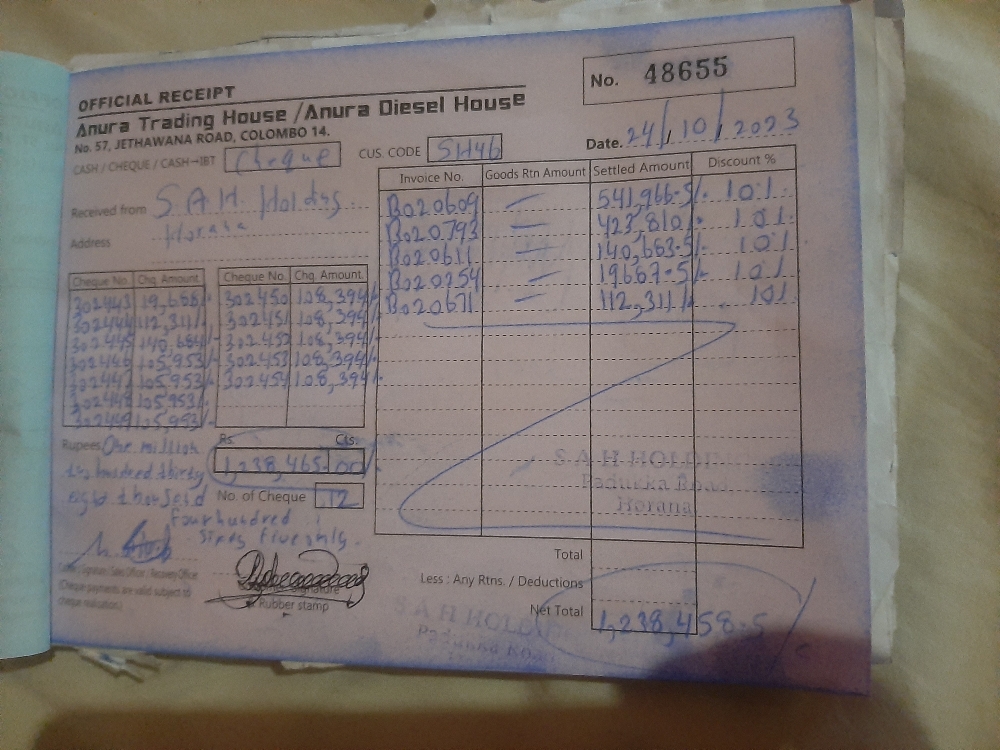 OFFICIAL RECEIPT
No. 48655
Anura Trading House /Anura Diesel House
No. 57, JETHAWANA ROAD, COLOMBO 14.
Date. 24/10/2023
CASH / CHEQUE / CASH→IBT Cheque CUS. CODE SH46
Received from S.A.H. Holdings
Address Horana
Invoice No. Goods Rtn Amount Settled Amount Discount %
B020609 — 541,966.5/- 10%
B020793 — 423,810/- 10%
B020611 — 140,683.5/- 10%
B020254 — 19667.5/- 10%
B020671 — 112,311/- 10%
Cheque No. Chq. Amount Cheque No. Chq. Amount
302443 19,668/- 302450 108,394/-
302444 112,311/- 302451 108,394/-
302445 140,684/- 302452 108,394/-
302446 105,953/- 302453 108,394/-
302447 105,953/- 302454 108,394/-
302448 105,953/-
302449 105,953/-
Rupees One million
Rs. Cts.
1,238,465.00
eight
No. of Cheque 12
four hundred
five only.
S A H HOLDIN
Padukka Road
Horana
Cheque payments are valid subject to
cheque realization.)
Rubber stamp
Total
Less : Any Rtns. / Deductions
Net Total 1,238,458.5
S A H HOLD
Padukka Road